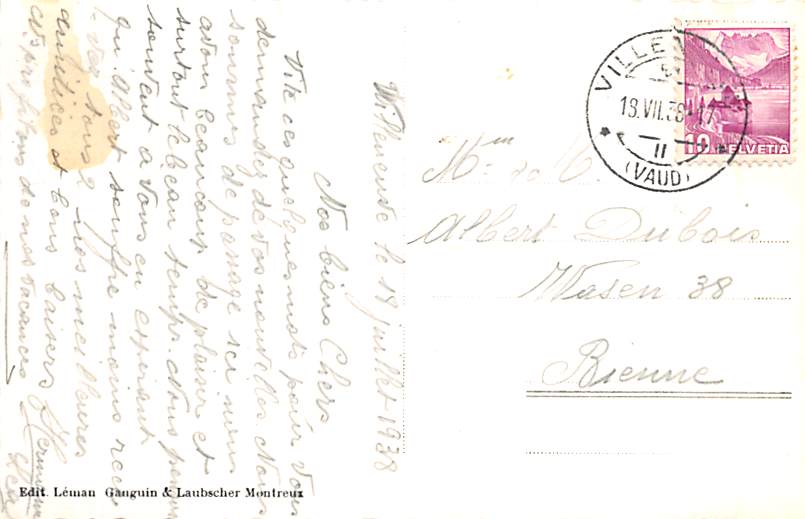 Villeneuve le 18 juillet 1938
Nos biens Chers
Vite ces quelques mots pour vous
demander de vos nouvelles. Nous
sommes de passage ici nous
avons beaucoup de plaisir et
surtout le beau temps. Nous pensons
souvent a vous en esperant
qu'Albert souffre moins
vous mes meilleures
amitiées et bons baisers
de nos vacances
Mme & M.
Albert Dubois
Wasen 38
Bienne
VILLENE
18.VII.38-17
II
(VAUD)
10 HELVETIA
Edit. Léman Gauguin & Laubscher Montreux